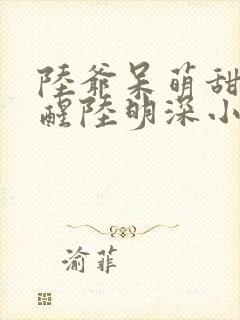 陸爺呆萌甜
醒陸明深小
渝菲